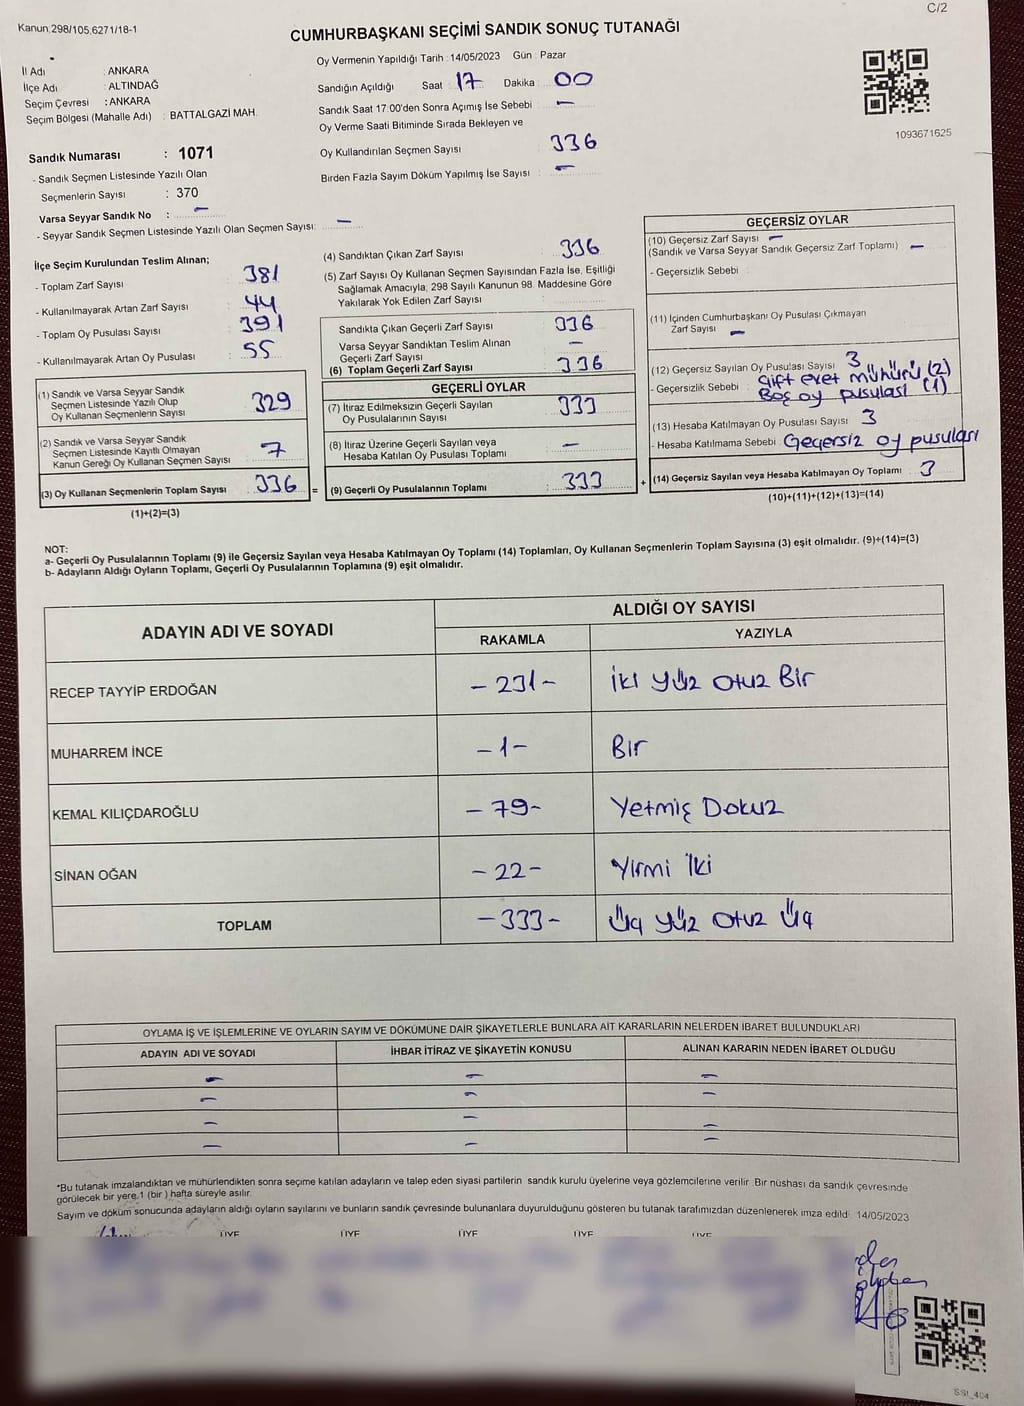 C/2
Kanun:298/105,6271/18-1
CUMHURBAŞKANI SEÇİMİ SANDIK SONUÇ TUTANAĞI
İl Adı : ANKARA
İlçe Adı : ALTINDAĞ
Seçim Çevresi : ANKARA
Seçim Bölgesi (Mahalle Adı) : BATTALGAZİ MAH.
Oy Vermenin Yapıldığı Tarih : 14/05/2023 Gün : Pazar
Sandığın Açıldığı Saat 17 Dakika : 00
Sandık Saat 17:00'den Sonra Açımış İse Sebebi : –
Oy Verme Saati Bitiminde Sırada Bekleyen ve
Oy Kullandırılan Seçmen Sayısı : 336
Birden Fazla Sayım Döküm Yapılmış İse Sayısı : –
1093671625
Sandık Numarası : 1071
- Sandık Seçmen Listesinde Yazılı Olan
Seçmenlerin Sayısı : 370
Varsa Seyyar Sandık No : –
- Seyyar Sandık Seçmen Listesinde Yazılı Olan Seçmen Sayısı: –
İlçe Seçim Kurulundan Teslim Alınan;
- Toplam Zarf Sayısı : 381
- Kullanılmayarak Artan Zarf Sayısı : 44
- Toplam Oy Pusulası Sayısı : 391
- Kullanılmayarak Artan Oy Pusulası : 55
(1) Sandık ve Varsa Seyyar Sandık
Seçmen Listesinde Yazılı Olup
Oy Kullanan Seçmenlerin Sayısı : 329
(2) Sandık ve Varsa Seyyar Sandık
Seçmen Listesinde Kayıtlı Olmayan
Kanun Gereği Oy Kullanan Seçmen Sayısı : 7
(3) Oy Kullanan Seçmenlerin Toplam Sayısı : 336 =
(1)+(2)=(3)
(4) Sandıktan Çıkan Zarf Sayısı : 336
(5) Zarf Sayısı Oy Kullanan Seçmen Sayısından Fazla İse, Eşitliği
Sağlamak Amacıyla; 298 Sayılı Kanunun 98. Maddesine Göre
Yakılarak Yok Edilen Zarf Sayısı :
Sandıkta Çıkan Geçerli Zarf Sayısı : 336
Varsa Seyyar Sandıktan Teslim Alınan
Geçerli Zarf Sayısı : –
(6) Toplam Geçerli Zarf Sayısı : 336
GEÇERLİ OYLAR
(7) İtiraz Edilmeksizin Geçerli Sayılan
Oy Pusulalarının Sayısı : 333
(8) İtiraz Üzerine Geçerli Sayılan veya
Hesaba Katılan Oy Pusulası Toplamı : –
(9) Geçerli Oy Pusulalarının Toplamı : 333 +
GEÇERSİZ OYLAR
(10) Geçersiz Zarf Sayısı –
(Sandık ve Varsa Seyyar Sandık Geçersiz Zarf Toplamı) –
- Geçersizlik Sebebi :
(11) İçinden Cumhurbaşkanı Oy Pusulası Çıkmayan
Zarf Sayısı : –
(12) Geçersiz Sayılan Oy Pusulası Sayısı : 3
- Geçersizlik Sebebi : Çift evet mühürü (2)
Boş oy pusulası (1)
(13) Hesaba Katılmayan Oy Pusulası Sayısı : 3
- Hesaba Katılmama Sebebi : Geçersiz oy pusulası
(14) Geçersiz Sayılan veya Hesaba Katılmayan Oy Toplamı : 3
(10)+(11)+(12)+(13)=(14)
NOT:
a- Geçerli Oy Pusulalarının Toplamı (9) ile Geçersiz Sayılan veya Hesaba Katılmayan Oy Toplamı (14) Toplamları, Oy Kullanan Seçmenlerin Toplam Sayısına (3) eşit olmalıdır. (9)+(14)=(3)
b- Adayların Aldığı Oyların Toplamı, Geçerli Oy Pusulalarının Toplamına (9) eşit olmalıdır.
ADAYIN ADI VE SOYADI
ALDIĞI OY SAYISI
RAKAMLA YAZIYLA
RECEP TAYYİP ERDOĞAN – 231 – İki Yüz Otuz Bir
MUHARREM İNCE – 1 – Bir
KEMAL KILIÇDAROĞLU – 79 – Yetmiş Dokuz
SİNAN OĞAN – 22 – Yirmi İki
TOPLAM – 333 – Üç Yüz Otuz Üç
OYLAMA İŞ VE İŞLEMLERİNE VE OYLARIN SAYIM VE DÖKÜMÜNE DAİR ŞİKAYETLERLE BUNLARA AİT KARARLARIN NELERDEN İBARET BULUNDUKLARI
ADAYIN ADI VE SOYADI İHBAR İTİRAZ VE ŞİKAYETİN KONUSU ALINAN KARARIN NEDEN İBARET OLDUĞU
– – –
– – –
– – –
– – –
*Bu tutanak imzalandıktan ve mühürlendikten sonra seçime katılan adayların ve talep eden siyasi partilerin sandık kurulu üyelerine veya gözlemcilerine verilir. Bir nüshası da sandık çevresinde
görülecek bir yere 1 (bir ) hafta süreyle asılır.
Sayım ve döküm sonucunda adayların aldığı oyların sayılarını ve bunların sandık çevresinde bulunanlara duyurulduğunu gösteren bu tutanak tarafımızdan düzenlenerek imza edildi. 14/05/2023
ÜYE ÜYE ÜYE ÜYE ÜYE
SSI_404